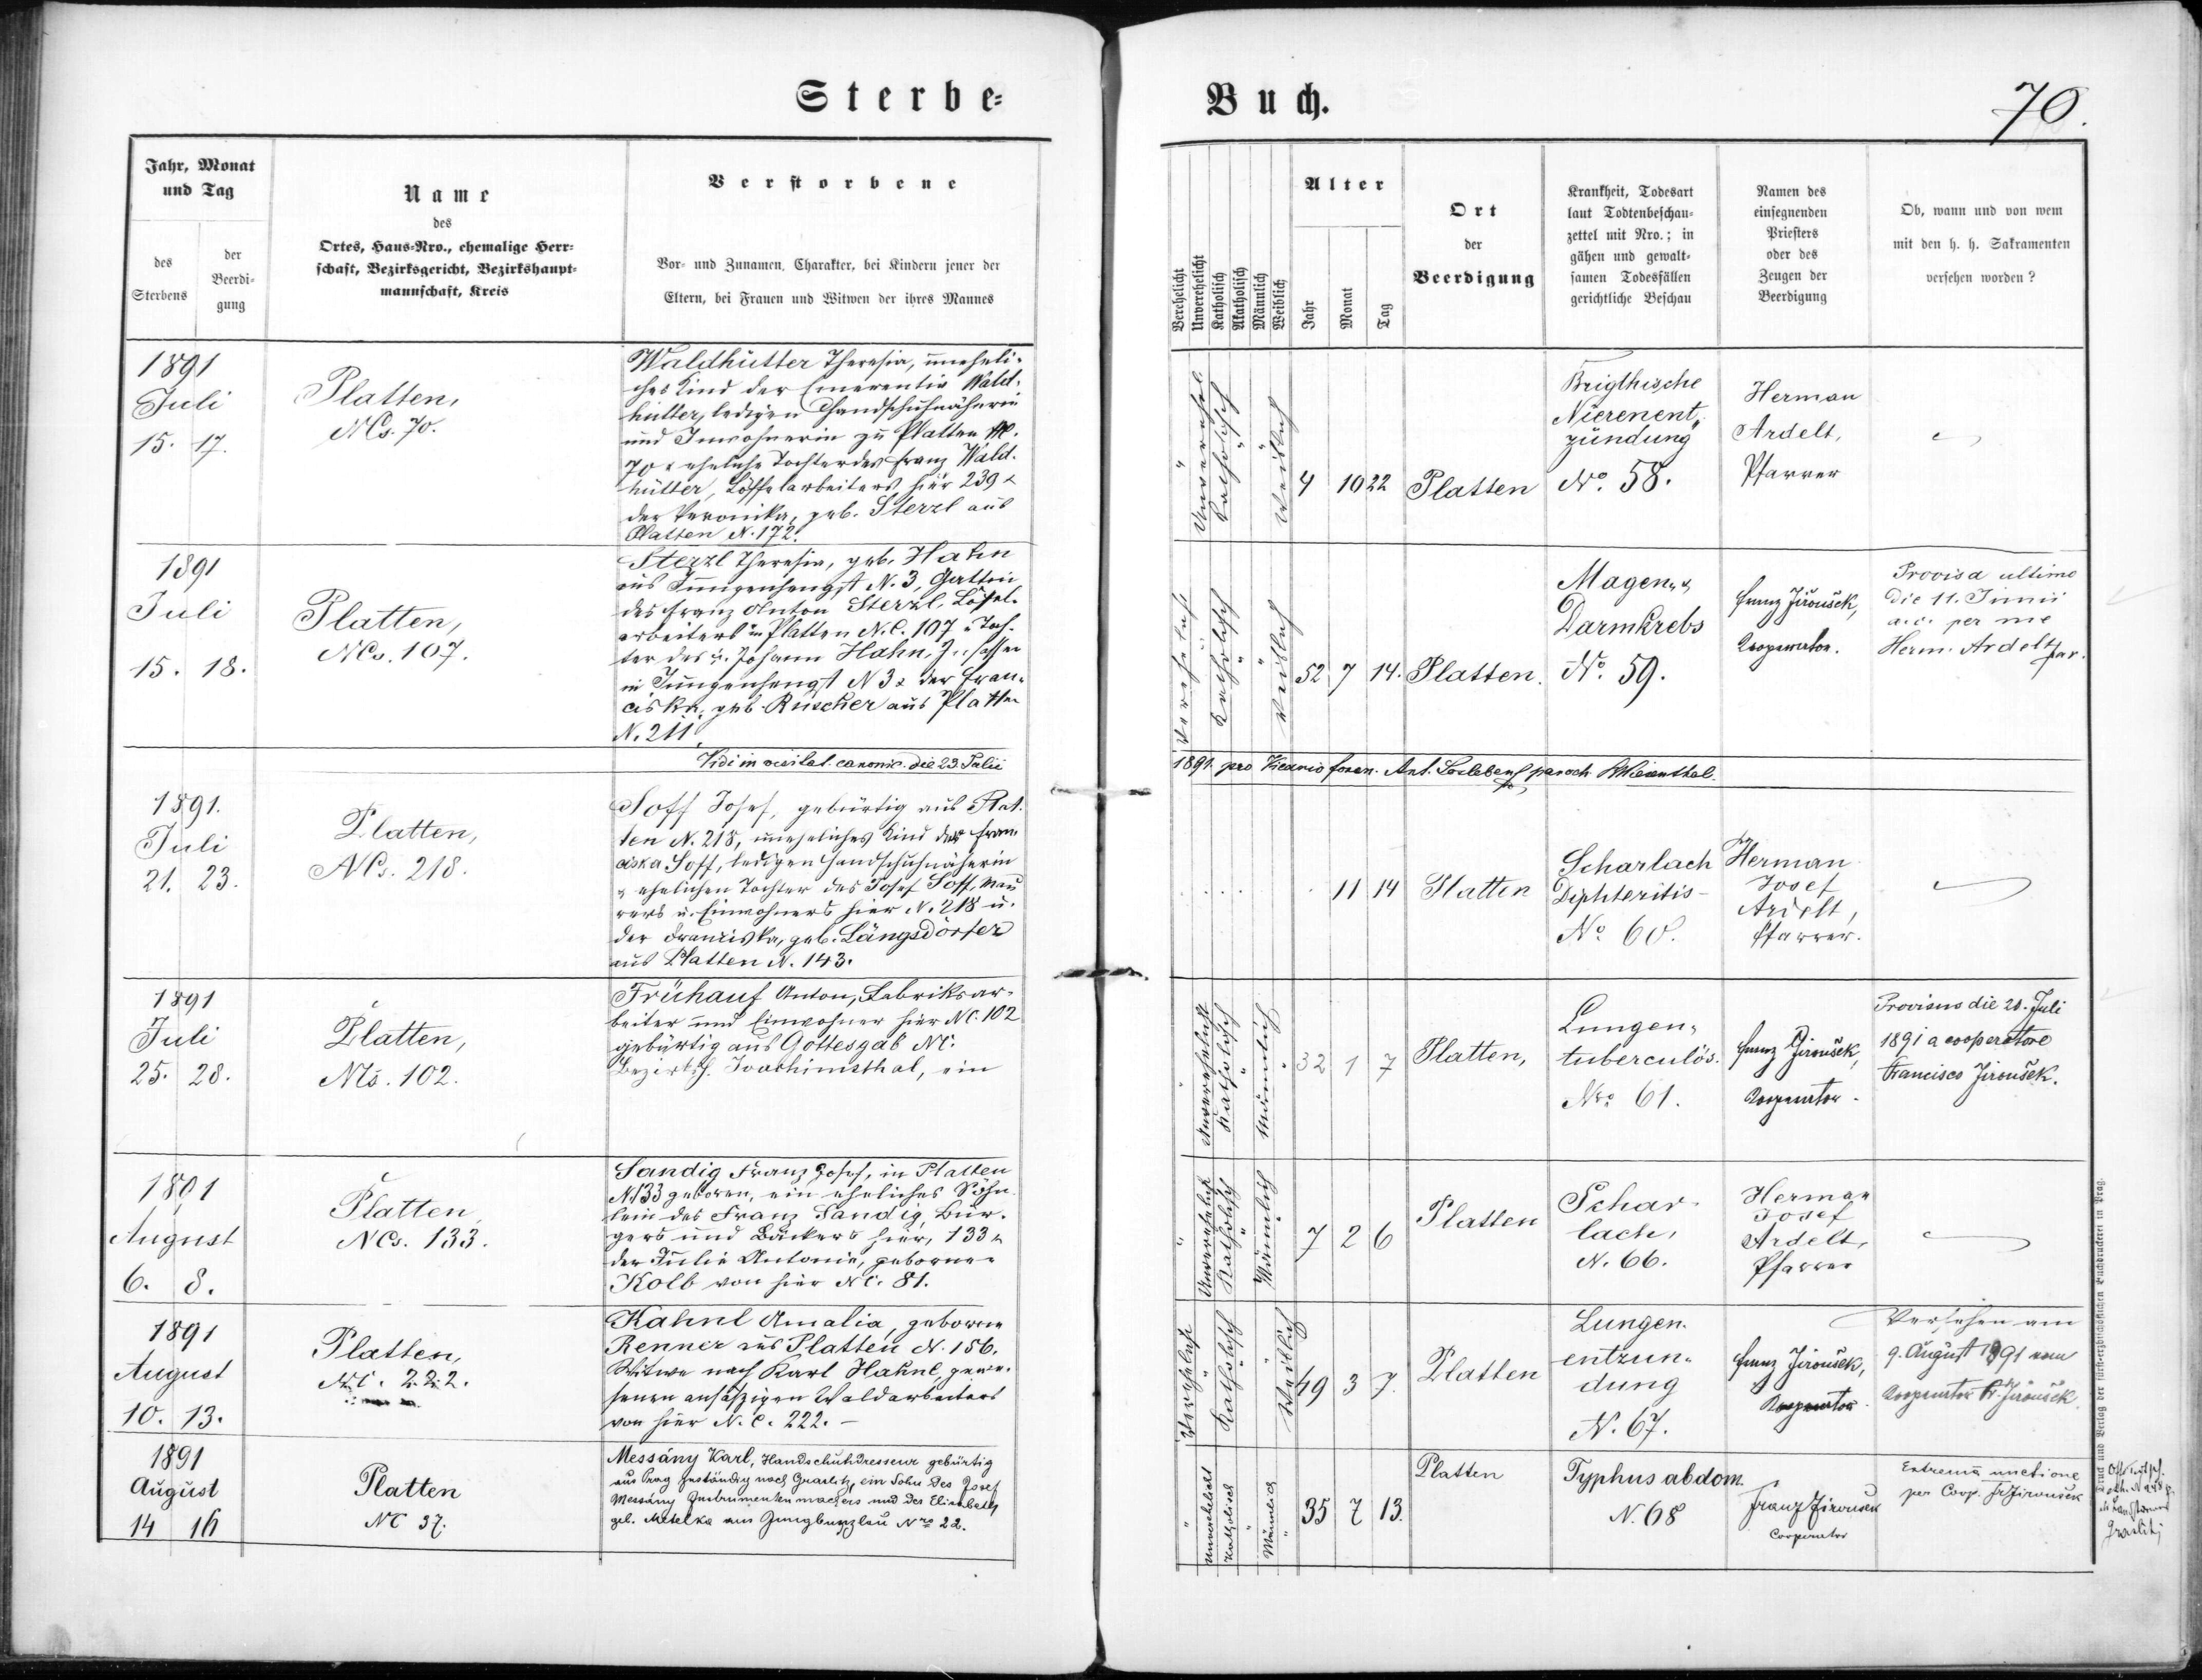 Sterbe-
Buch.
70.
Jahr, Monat
und Tag
des
Sterbens
der
Beerdi-
gung
Name
des
Ortes, Haus-Nro., ehemalige Herr-
schaft, Bezirksgericht, Bezirkshaupt-
mannschaft, Kreis
Verstorbene
Vor- und Zunamen, Charakter, bei Kindern jener der
Eltern, bei Frauen und Witwen der ihres Mannes
Verehelicht
Unverehelicht
Katholisch
Akatholisch
Männlich
Weiblich
Alter
Jahr
Monat
Tag
Ort
der
Beerdigung
Krankheit, Todesart
laut Todtenbeschau-
zettel mit Nro.; in
gähen und gewalt-
samen Todesfällen
gerichtliche Beschau
Namen des
einsegnenden
Priesters
oder des
Zeugen der
Beerdigung
Ob, wann und von wem
mit den h. h. Sakramenten
versehen worden?
1891
Juli
15. 17.
Platten,
NCs. 70.
Waldhütter Theresia, uneheli-
ches Kind der Emerentia Wald-
hütter, ledigen Handschuhnäherin
und Inwohnerin zu Platten
70 & eheliche Tochter des Franz Wald-
hütter, Löffelarbeiters hier 239 &
der Veronika, geb. Sterzl aus
Platten N. 172.
Unverehel.
Katholisch
Weiblich
4 10 22
Platten
Brigthische
Nierenent-
zündung
No. 58.
Herman
Ardelt,
Pfarrer
1891
Juli
15. 18.
Platten,
NCs. 107.
Sterzl Theresia, geb. Hahn
aus Jungenhengst N. 3, Gattin
des Franz Anton Sterzl, Löfel-
arbeiters in Platten N.C. 107 u. Toch-
ter des Johann Hahn, Insassen
in Jungenhengst N 3 & der Fran-
ciska, geb. Rüscher aus Platten
N. 211.
Verehelicht
Katholisch
Weiblich
52 7 14.
Platten.
Magen- &
Darmkrebs
No. 59.
Franz Jiroušek,
Kooperator.
Provisa ultimo
die 11. Junii
a. c. per me
Herm. Ardelt par.
Vidi in visitat. canonic. die 23. Julii
1891. pro Vicario foran. Ant.
1891.
Juli
21. 23.
Platten,
NCs. 218.
Soff Josef, gebürtig aus Plat-
ten N. 218, uneheliches Kind der Fran-
ciska Soff, ledigen Handschuhnäherin
& ehelichen Tochter des Josef Soff, Mau-
rers u. Einwohners hier N. 218 u.
der Franziska, geb. Längsdörfer
aus Platten N. 143.
11 14
Platten
Scharlach
Diphteritis-
No 60.
Herman
Josef
Ardelt,
Pfarrer.
1891
Juli
25. 28.
Platten,
NCs. 102.
Frühauf Anton, Fabriksar-
beiter und Einwohner hier NC. 102
gebürtig aus Gottesgab NC.
Bezirksh. Joachimsthal, ein
Unverehelicht
Katholisch
Männlich
32 1 7
Platten,
Lungen-
tuberculös.
Nro 61.
Franz Jiroušek,
Kooperator.
Provisus die 20. Juli
1891 a cooperatore
Francisco Jiroušek.
1891
August
6. 8.
Platten
NCs. 133.
Sandig Franz Josef, in Platten
N. 133 geboren, ein eheliches Söhn-
lein des Franz Sandig, Bür-
gers und Bäckers hier, 133 &
der Julie Antonie, geborne-
Kolb von hier NC. 81.
Unverehelicht
Katholisch
Männlich
7 2 6
Platten
Schar-
lach,
N. 66.
Herman
Josef
Ardelt,
Pfarrer
1891
August
10. 13.
Platten,
NC. 222.
Hahnl Amalia, geborne
Renner aus Platten N. 156,
Witwe nach Karl Hahnl, gewe-
senen ansässigen Waldarbeiters
von hier N. C. 222. -
Verehelicht
Katholisch
Weiblich
49 3 7.
Platten
Lungen-
entzün-
dung
N. 67.
Franz Jiroušek,
Kooperator.
Versehen am
9. August 1891 vom
Kooperator Fr. Jiroušek.
1891
August
14 16
Platten
NC 37.
Messány Karl, Handschuhdresseur gebürtig
aus Prag zuständig nach Graslitz, ein Sohn des Josef
Messány Instrumentenmachers und der Elisabeth
geb. Metelka aus Jungbunzlau Nro 22.
Unverehelicht
Katholisch
Männlich
35 7 13.
Platten
Typhus abdom.
N. 68
Franz Jiroušek
Cooperator
Extrema unctione
per Coop. Fr. Jiroušek
Graslitz
Druck und Verlag der fürst-erzbischöflichen Buchdruckerei in Prag.